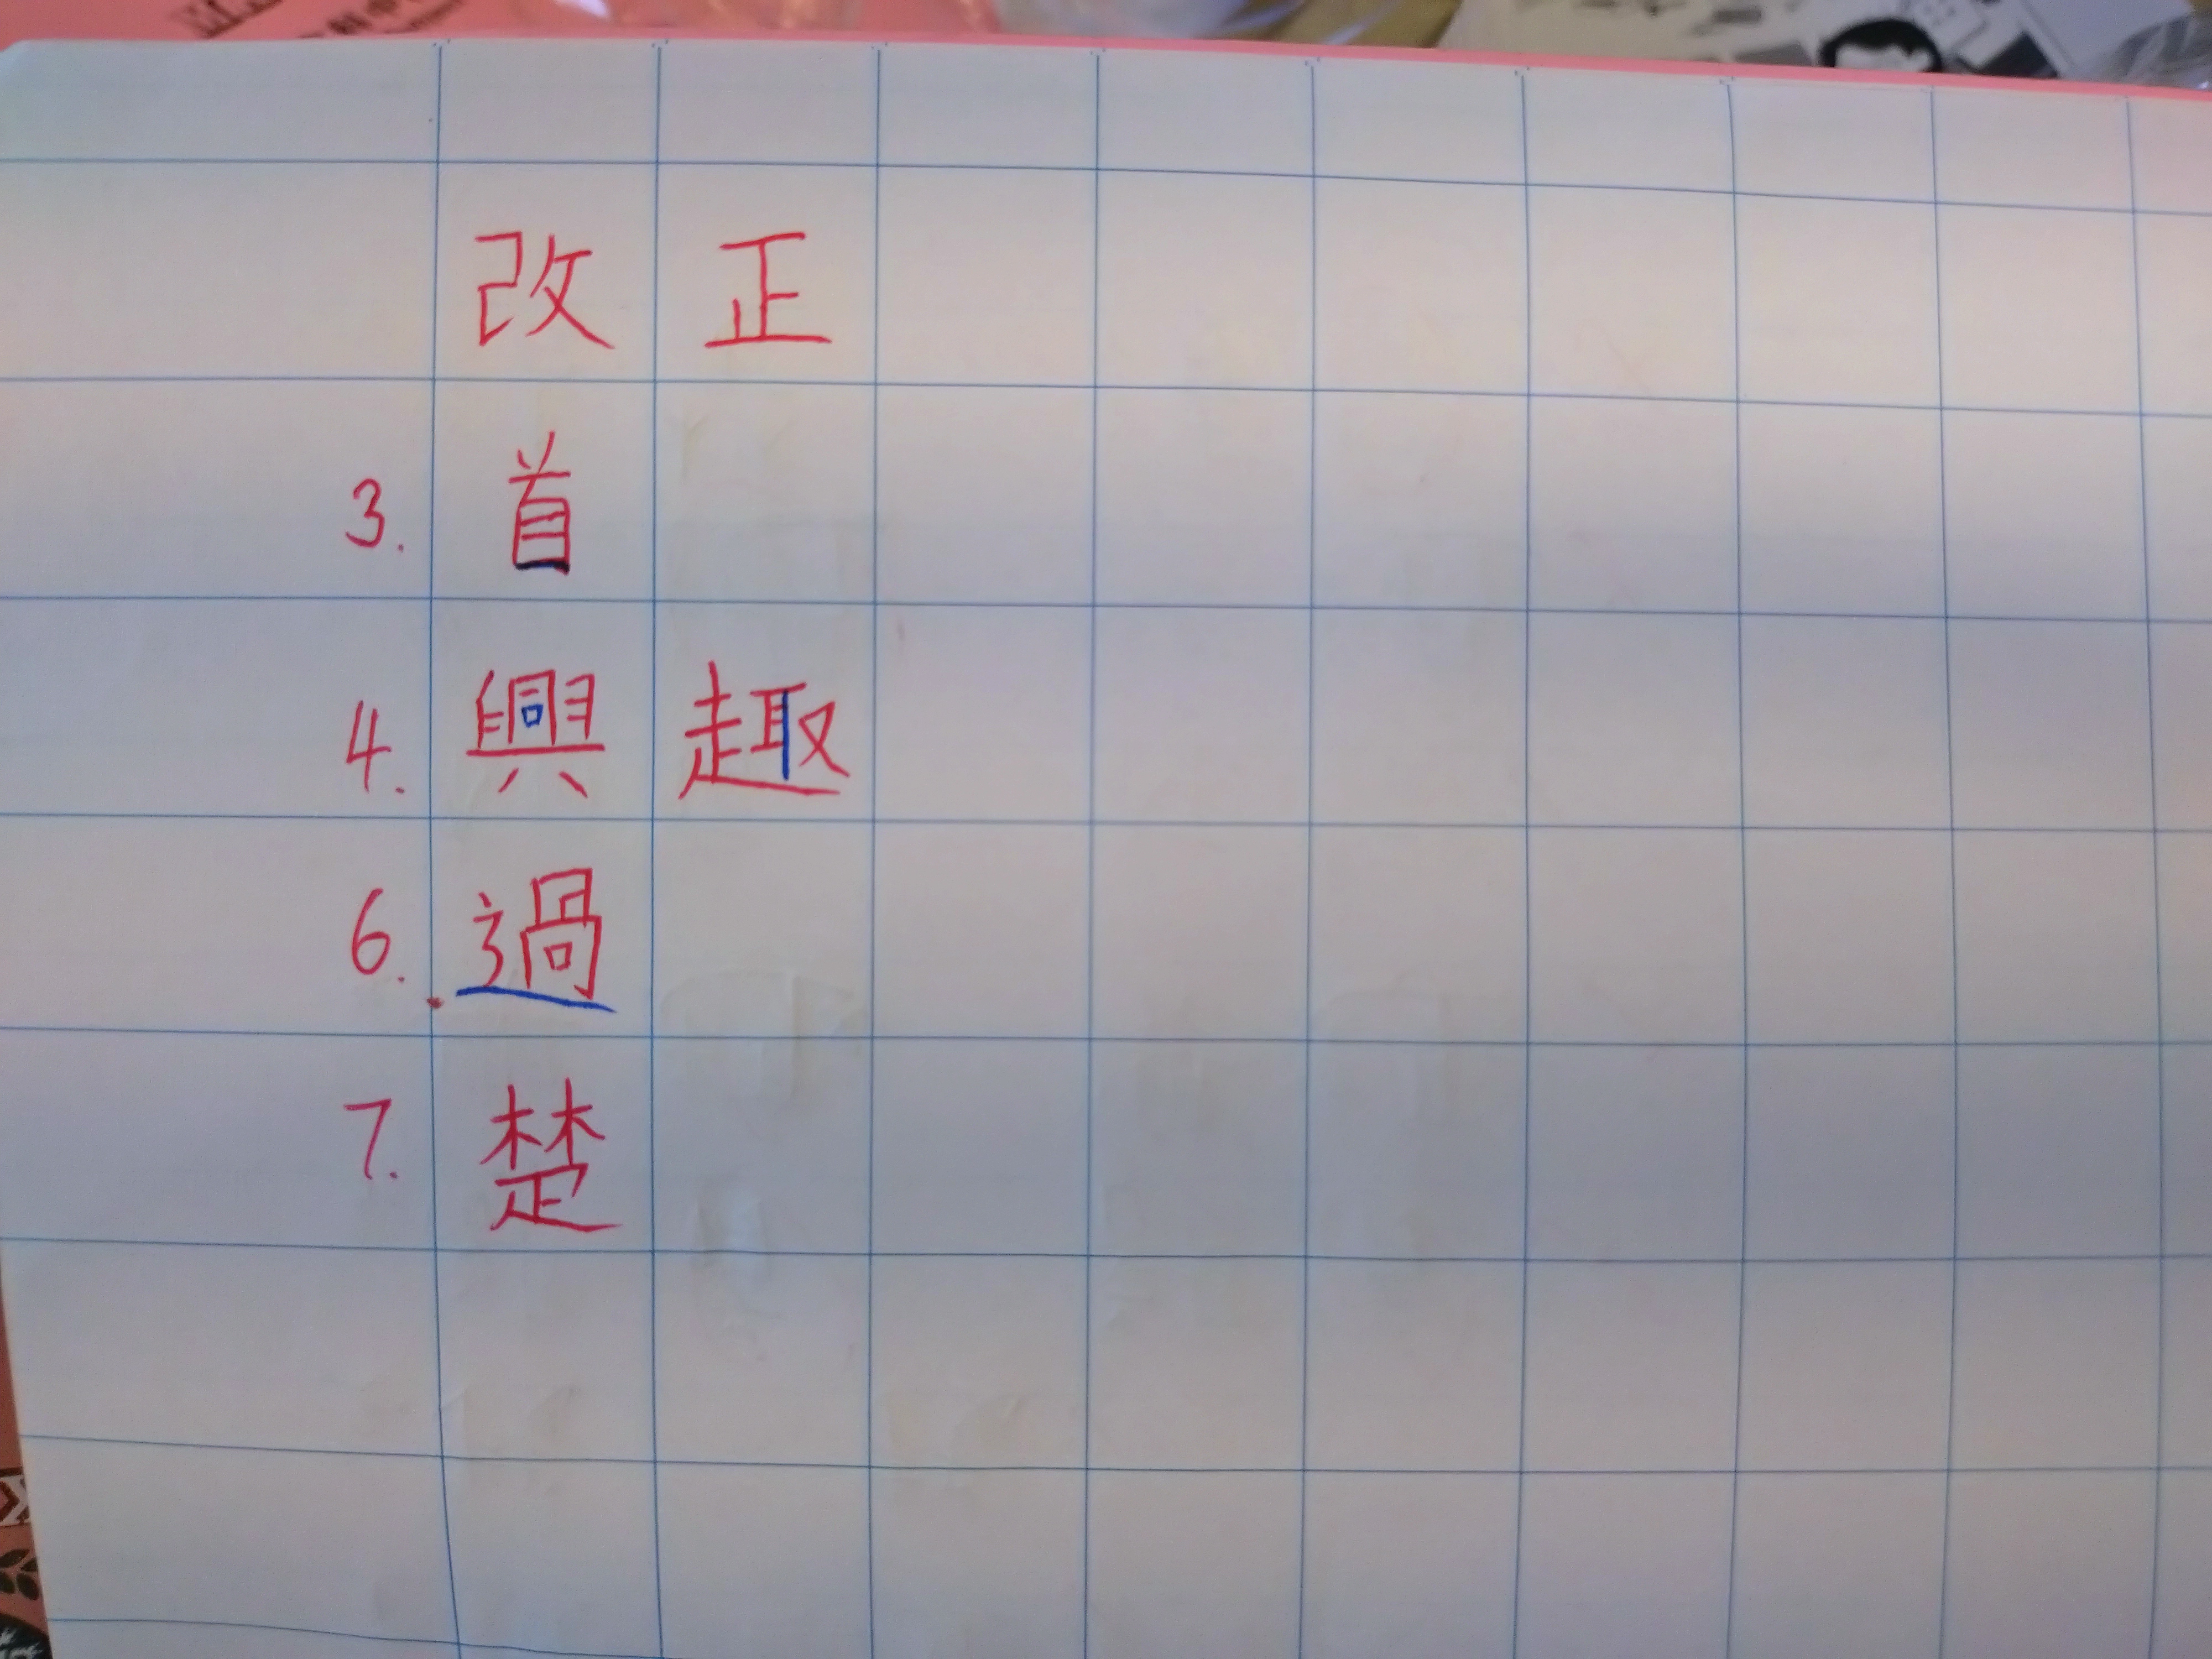 改正
3. 首
4. 興趣
6. 過
7. 楚